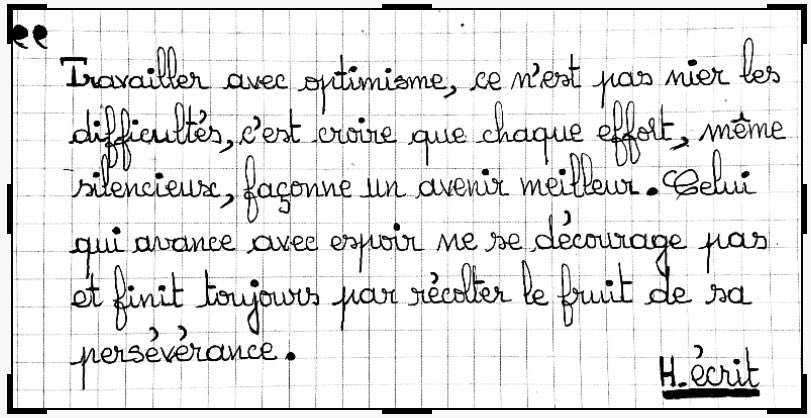 “
Travailler avec optimisme, ce n'est pas nier les
difficultés, c'est croire que chaque effort, même
silencieux, façonne un avenir meilleur. Celui
qui avance avec espoir ne se décourage pas
et finit toujours par récolter le fruit de sa
persévérance.
H_écrit